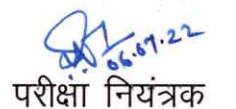 06.07.22
परीक्षा नियंत्रक